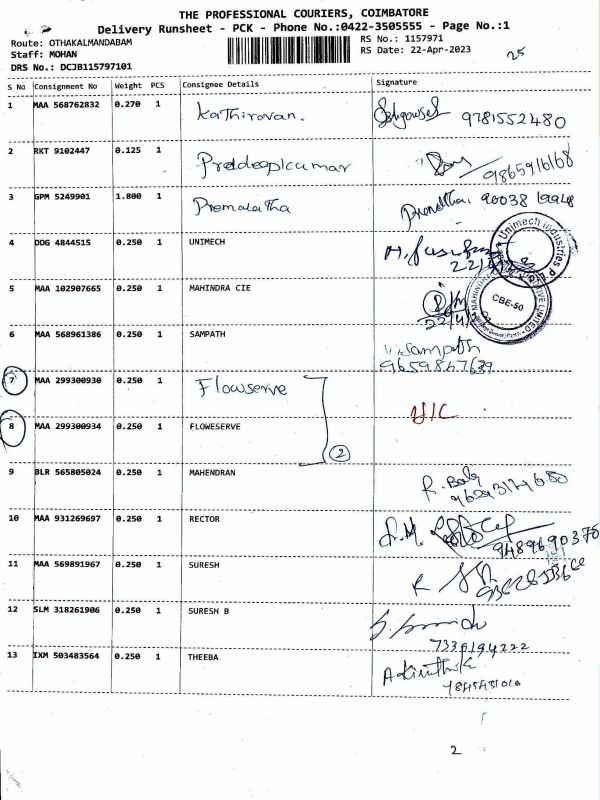 THE PROFESSIONAL COURIERS, COIMBATORE
Delivery Runsheet - PCK - Phone No.:0422-3505555 - Page No.:1
Route: OTHAKALMANDABAM
RS No.: 1157971
Staff: MOHAN
RS Date: 22-Apr-2023
25
DRS No.: DCJB115797101
S No Consignment No Weight PCS Consignee Details Signature
1 MAA 568762832 0.270 1 Kathiravan. 9781552480
2 RKT 9102447 0.125 1 Pradeepkumar
3 GPM 5249901 1.800 1 Premalatha
4 DDG 4844515 0.250 1 UNIMECH
Unimech Industries
5 MAA 102907665 0.250 1 MAHINDRA CIE
CBE-50
6 MAA 568961386 0.250 1 SAMPATH Sampath
9659847639
7 MAA 299300930 0.250 1 Flowserve
8 MAA 299300934 0.250 1 FLOWESERVE
2
9 BLR 565805024 0.250 1 MAHENDRAN
10 MAA 931269697 0.250 1 RECTOR
9489690370
11 MAA 569891967 0.250 1 SURESH
12 SLM 318261906 0.250 1 SURESH B
7339194222
13 IXM 503483564 0.250 1 THEEBA
2